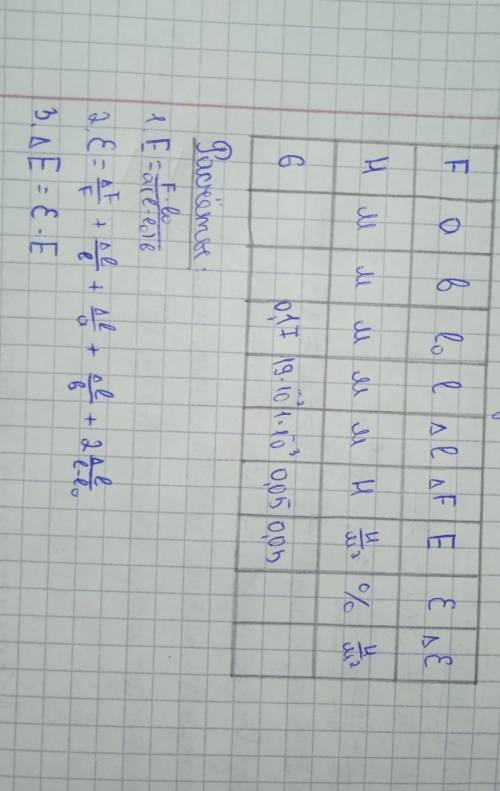 F a b l₀ l Δl ΔF E ε Δε
Н м м м м м Н Н/м² % Н/м²
6 0,17 19·10⁻² 1·10⁻³ 0,05 0,05
Расчёты:
1. E = F·l₀/a(l-l₀)b
2. ε = ΔF/F + Δl/l + Δl/a + Δl/b + 2 Δl/l-l₀
3. ΔE = ε · E